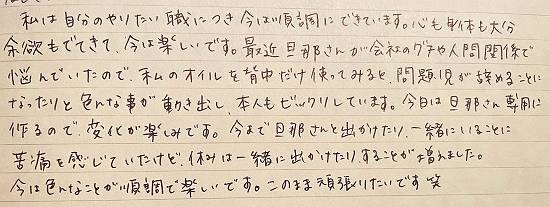 私は自分のやりたい職につき今は順調にできています。心も身体も大分
余欲もでてきて、今は楽しいです。最近旦那さんが会社のグチや人間関係で
悩んでいたので、私のオイルを背中だけ使ってみると、問題児が辞めることに
なったりと色んな事が動き出し、本人もビックリしています。今日は旦那さん専用に
作るので、変化が楽しみです。今まで旦那さんと出かけたり、一緒にいることに
苦痛を感じていたけど、休みは一緒に出かけたりすることが増えました。
今は色んなことが順調で楽しいです。このまま頑張りたいです笑